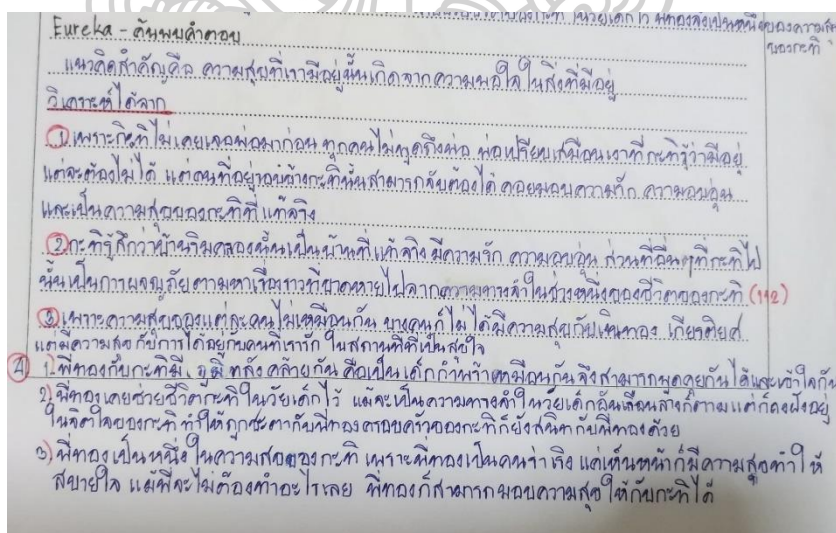 วัยเด็กไว้ พี่ทองจึงเป็นหนึ่งของความสุข
ของกะทิ
Eureka - ค้นพบคำตอบ
แนวคิดสำคัญคือ ความสุขที่เรามีอยู่นั้นเกิดจากความพอใจในสิ่งที่มีอยู่
วิเคราะห์ได้จาก
① เพราะกะทิไม่เคยเจอพ่อมาก่อน ทุกคนไม่พูดถึงพ่อ พ่อเปรียบเสมือนเงาที่กะทิรู้ว่ามีอยู่
แต่จะต้องไม่ได้ แต่คนที่อยู่รอบข้างกะทินั้นสามารถจับต้องได้ คอยมอบความรัก ความอบอุ่น
และเป็นความสุขของกะทิที่แท้จริง
② กะทิรู้สึกว่าบ้านริมคลองนั้นเป็นบ้านที่แท้จริง มีความรัก ความอบอุ่น ส่วนที่อื่นๆที่กะทิไป
นั้นเป็นการผจญภัยตามหาเรื่องราวที่ขาดหายไปจากความทรงจำในช่วงหนึ่งของชีวิตของกะทิ (112)
③ เพราะความสุขของแต่ละคนไม่เหมือนกัน บางคนก็ไม่ได้มีความสุขกับเงินทอง เกียรติยศ
แต่มีความสุขกับการได้อยู่กับคนที่เรารัก ในสถานที่ที่เป็นสุขใจ
④ 1. พี่ทองกับกะทิมี ภูมิหลังคล้ายกัน คือเป็นเด็กกำพร้าเหมือนกัน จึงสามารถพูดคุยกันได้และเข้าใจกัน
2) พี่ทองเคยช่วยชีวิตกะทิในวัยเด็กไว้ แม้จะเป็นความทรงจำในวัยเด็กอันเลือนลางก็ตาม แต่ก็คงฝังอยู่
ในจิตใจของกะทิ ทำให้ถูกชะตากับพี่ทอง ครอบครัวของกะทิก็ยังสนิทกับพี่ทองด้วย
3) พี่ทองเป็นหนึ่งในความสุขของกะทิ เพราะพี่ทองเป็นคนร่าเริง แค่เห็นหน้าก็มีความสุข ทำให้
สบายใจ แม้พี่จะไม่ต้องทำอะไรเลย พี่ทองก็สามารถมอบความสุขให้กับกะทิได้